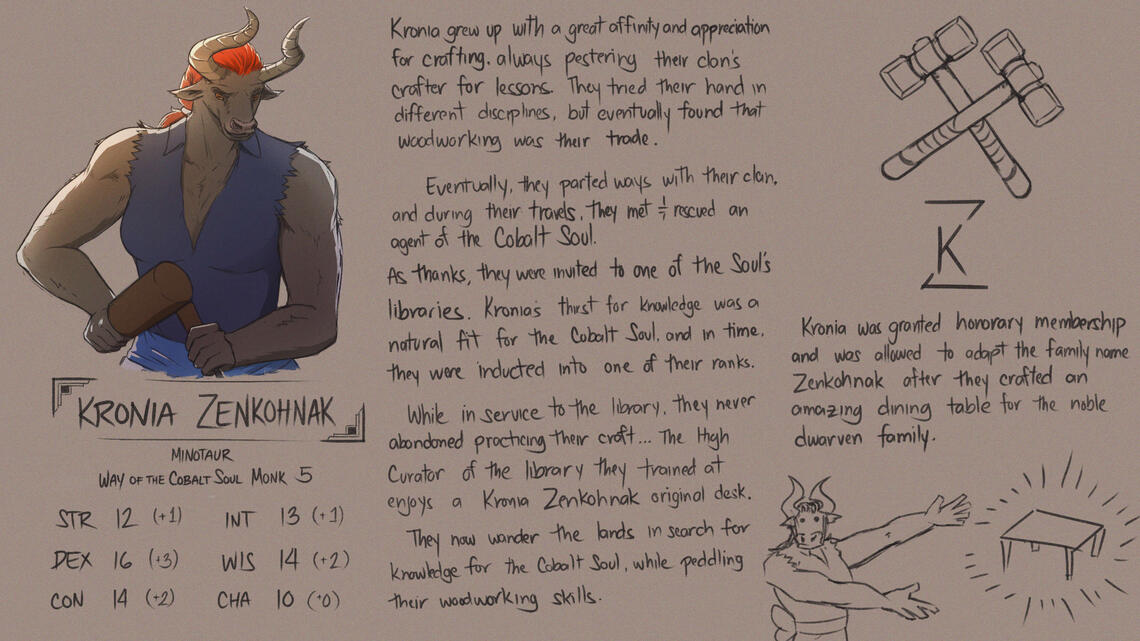 KRONIA ZENKOHNAK
MINOTAUR
WAY OF THE COBALT SOUL MONK 5
STR 12 (+1) INT 13 (+1)
DEX 16 (+3) WIS 14 (+2)
CON 14 (+2) CHA 10 (+0)
Kronia grew up with a great affinity and appreciation
for crafting. always pestering their clan's
crafter for lessons. They tried their hand in
different disciplines, but eventually found that
woodworking was their trade.
Eventually, they parted ways with their clan,
and during their travels, They met & rescued an
agent of the Cobalt Soul.
As thanks, they were invited to one of the Soul's
libraries. Kronia's thirst for knowledge was a
natural fit for the Cobalt Soul, and in time,
they were inducted into one of their ranks.
While in service to the library, they never
abandoned practicing their craft... The High
Curator of the library they trained at
enjoys a Kronia Zenkohnak original desk.
They now wander the lands in search for
knowledge for the Cobalt Soul, while peddling
their woodworking skills.
K
Kronia was granted honorary membership
and was allowed to adapt the family name
Zenkohnak after they crafted an
amazing dining table for the noble
dwarven family.